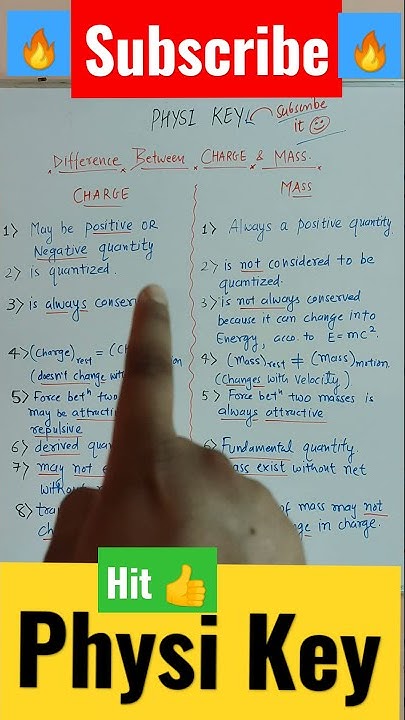 Subscribe
PHYSI KEY
Subscribe
it
Difference Between CHARGE & MASS.
CHARGE
1) May be positive OR
Negative quantity
2) is quantized.
3) is always
4) (Charge)rest =
(doesn't change
5) Force betn two
may be
repulsive
6) derived
7) may not
8)
MASS
1) Always a positive quantity.
2) is not considered to be
quantized.
3) is not always conserved
because it can change into
Energy, acco. to E=mc².
4) (Mass)rest ≠ (mass)motion.
(Changes with velocity)
5) Force betn two masses is
always attractive
Fundamental quantity
exist without net
of mass may not
in charge.
Hit
Physi Key